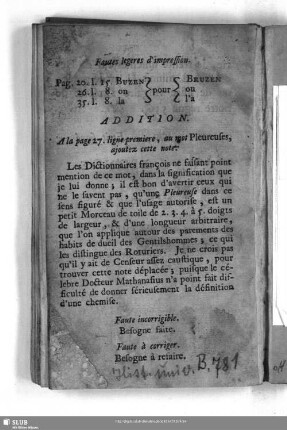 Fautes legeres d'impression.
Pag. 20. l. 15. BUZEN } { BRUZEN
26. l. 8. on } pour { ou
35. l. 8. la } { l'à
ADDITION.
A la page 27. ligne premiere, au mot Pleureuses,
ajoutez cette note:
Les Dictionnaires françois ne faisant point
mention de ce mot, dans la signification que
je lui donne; il est bon d'avertir ceux qui
ne le savent pas, qu'une Pleureuse dans ce
sens figuré & que l'usage autorise, est un
petit Morceau de toile de 2. 3. 4. à 5. doigts
de largeur, & d'une longueur arbitraire,
que l'on applique autour des parements des
habits de dueil des Gentilshommes; ce qui
les distingue des Roturiers. Je ne crois pas
qu'il y ait de Censeur assez caustique, pour
trouver cette note déplacée; puisque le cé-
lebre Docteur Mathanasius n'a point fait dif-
ficulté de donner sérieusement la définition
d'une chemise.
Faute incorrigible.
Besogne faite.
Faute à corriger.
Besogne à refaire.
Hist. univ. B. 781
SLUB